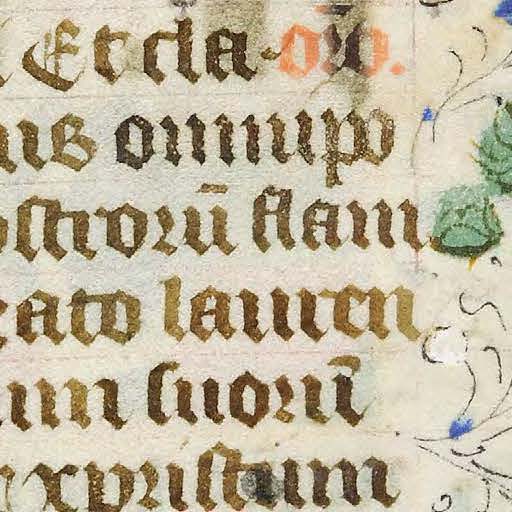 Et cla. oro.
nis omnipo
ostrorū flam
ato lauren
um suorū
xpristum